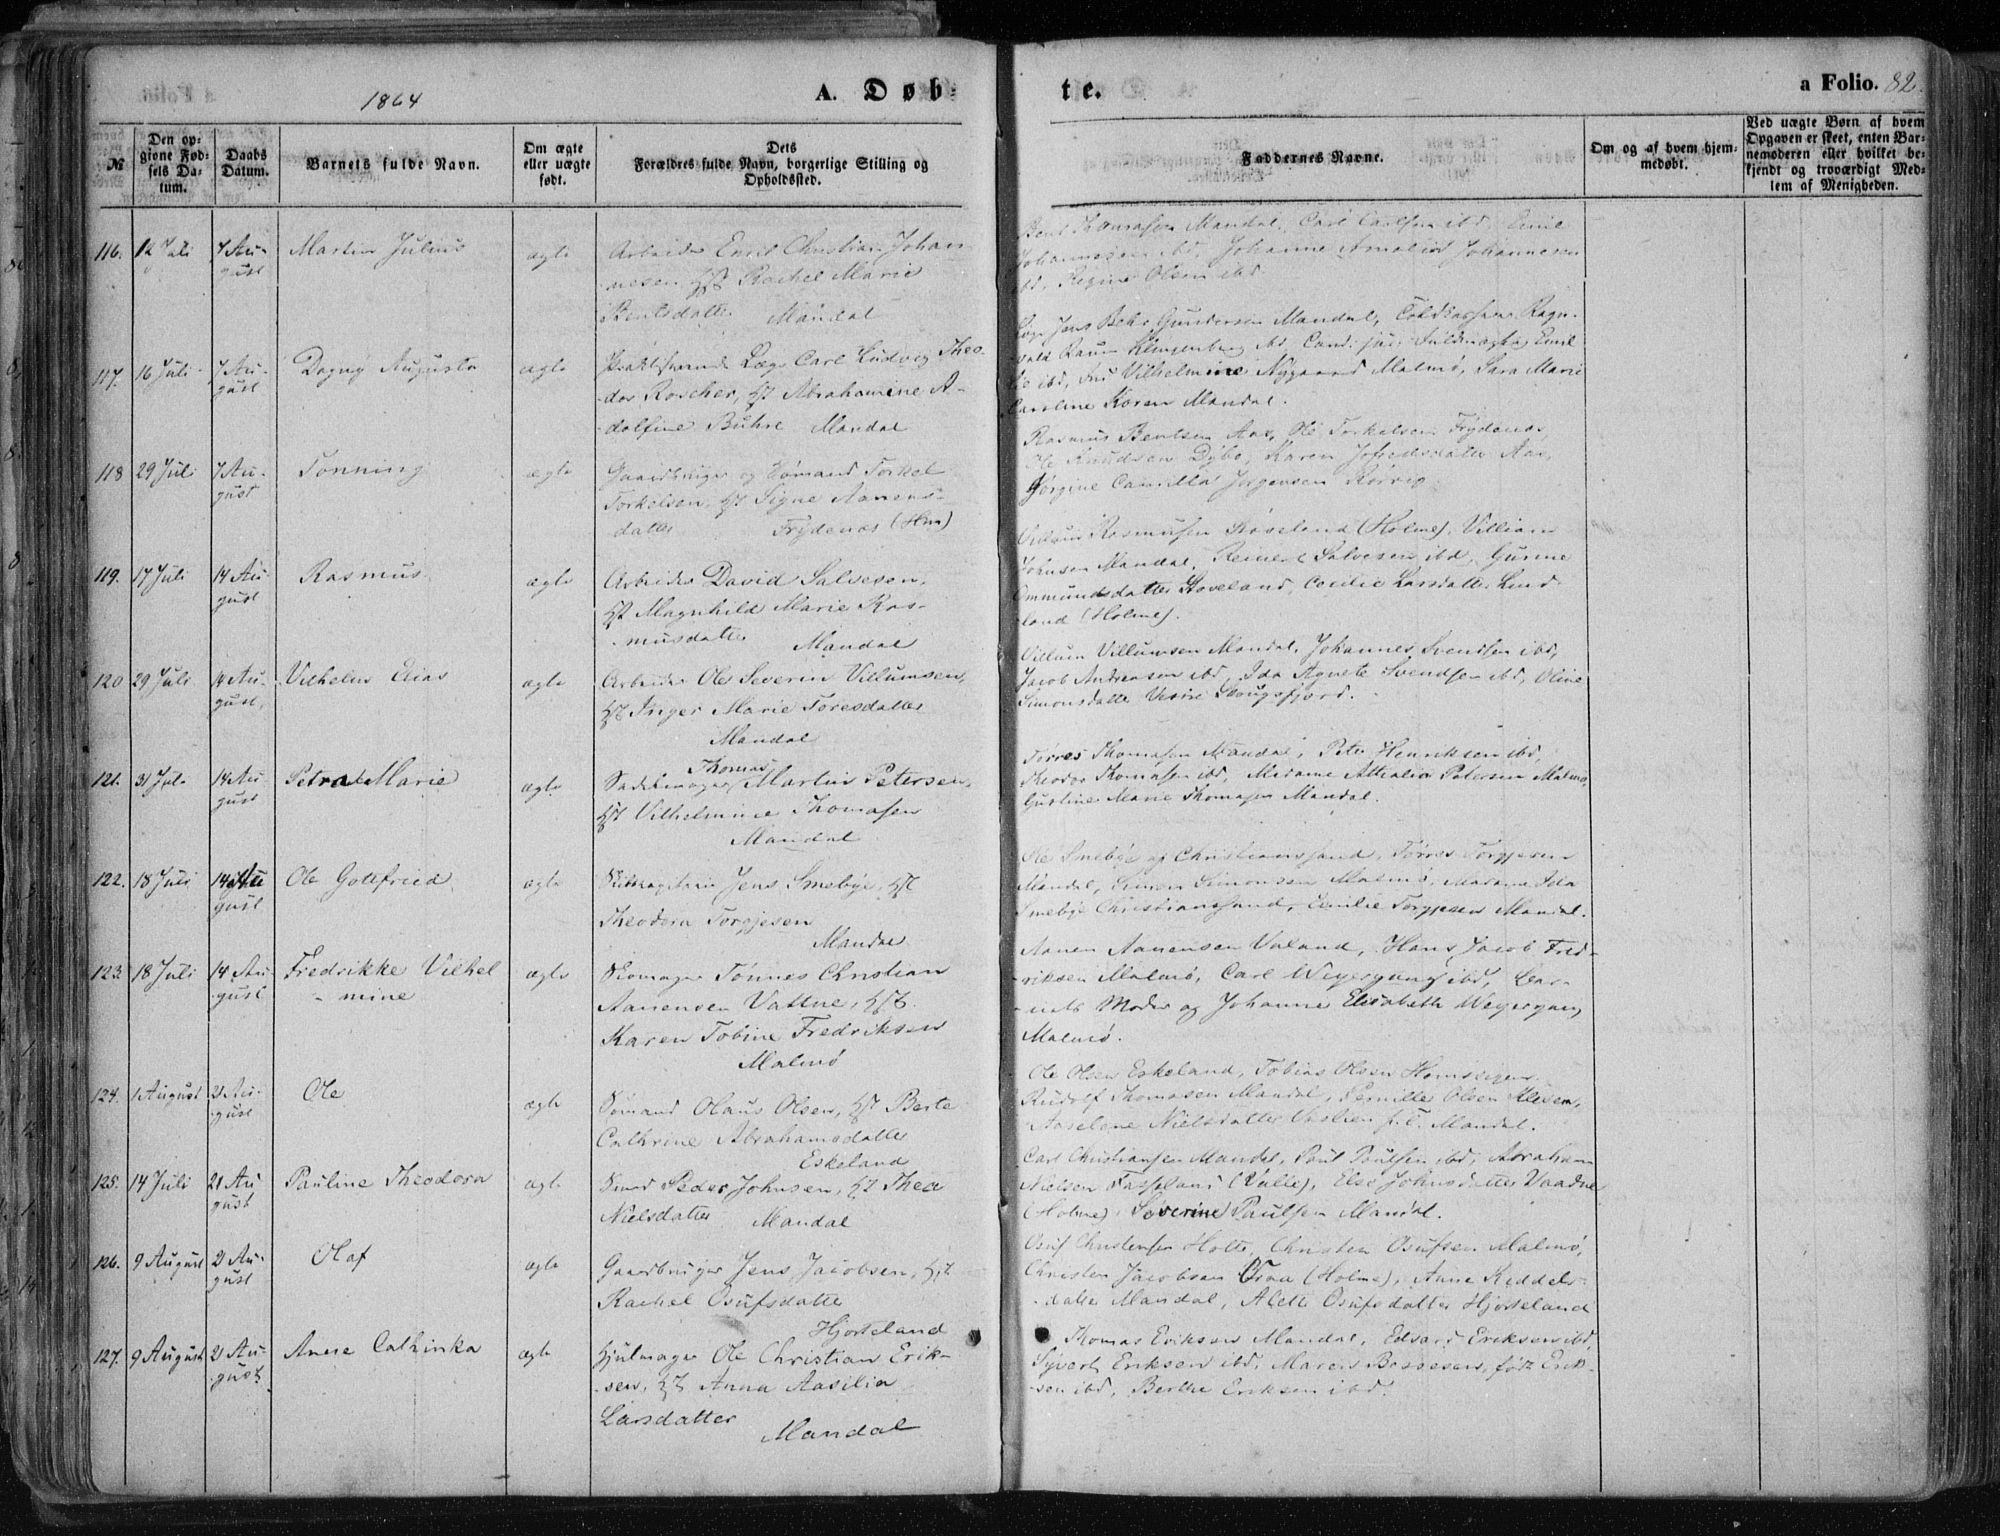 1864
A. Døb-
te.
a Folio. 82.
№
Den op-
givne Fød-
sels Da-
tum.
Daabs
Datum.
Barnets fulde Navn.
Om ægte
eller uægte
født.
Dets
Forældres fulde Navn, borgerlige Stilling og
Opholdssted.
Faddernes Navne.
Om og af hvem hjem-
medøbt.
Ved uægte Børn af hvem
Opgaven er skeet, enten Bar-
nemoderen eller hvilket be-
kjendt og troværdigt Med-
lem af Menigheden.
116. 12 Juli 7 Au-
gust
Martin Julius
ægte
Arbeider Emil Christian Johan-
nesen, Hst Rachel Marie
Bentsdatter Mandal
Bent Thomasen Mandal, Carl Carlsen ibd, Emil
Johannesen ibd, Johanne Amalia Johannesen
ibd, Regine Olsen ibd.
117. 16 Juli 7 Au-
gust
Dagny Augusta
ægte
Praktiserende Læge Carl Ludvig Theo-
dor Roscher, Hst Abrahamine A-
dolfine Buhre Mandal
Læge Jens Behr Gundersen Mandal, Toldkasserer Ragn-
vald Klingenberg ibd, Cand: jur: Fuldmægtig Emil
ibd, Vilhelmine Nygaard Malmø, Sara Marie
Caroline Koren Mandal.
118 29 Juli 7 Au-
gust
Tonning
ægte
Gaardbruger og Sømand Torkel
Torkelsen, Hst Signe Aanens-
datter Frydenæs (Hm)
Rasmus Bentsen Aas, Ole Torkelsen Frydenæs,
Ole Knudsen Dybo, Karen Jofredsdatter Aas,
Jørgine Camilla Jørgensen Rørvig
119. 17 Juli 14 Au-
gust
Rasmus
ægte
Arbeider David Salvesen,
Hst Magnhild Marie Ras-
musdatter
Mandal
Rasmusen Støveland (Holme), Villiam
Johnsen Mandal, Reinert Salvesen ibd, Gurine
Ommundsdatter Støveland, Cecilie Larsdatter Lind-
land (Holme).
120 29 Juli 14 Au-
gust.
Vilhelm Elias
ægte
Arbeider Ole Severin Villumsen,
Hst Inger Marie Toresdatter
Mandal
Villum Villumsen Mandal, Johannes Svendsen ibd,
Jacob Andreasen ibd, Ida Agnete Svendsen ibd, Oline
Simonsdatter Skougsfjord.
121. 31 Juli 14 Au-
gust
Petra Marie
ægte
Thomas
Sadelmager Martin Petersen,
Hst Vilhelmine Thomasen
Mandal
Tørres Thomasen Mandal, Peter Henriksen ibd,
Theodor Thomasen ibd, Madame Attralia Petersen Malmø,
Gustine Marie Thomasen Mandal.
122. 18 Juli 14 Au
gust
Ole Gottfried
ægte
Jens Smebye, Hst
Theodora Torgjesen
Mandal
Ole Smebye af Christianssand, Tørres Torgjesen
Mandal, Simon Simonsen Malmø, Madame Ida
Smebye Christianssand, Emilie Torgjesen Mandal.
123. 18 Juli 14 Au-
gust
Fredrikke Vilhel-
mine
ægte
Skomager Tønnes Christian
Aanensen Vattne, Hst
Karen Tobine Fredriksen
Malmø
Aanen Aanensen Valand, Hans Jacob Fred-
riksen Malmø, Carl Weyergang ibd, Bar-
nets Moder og Johanne Elisabeth Weyergang
Malmø.
124. 1 August 21 Au-
gust
Ole
ægte
Sømand Olaus Olsen, Hst Berte
Cathrine Abrahamsdatter
Eskeland
Ole Olsen Eskeland, Tobias Olsen
Rudolf Thomasen Mandal, Pernille Olsen
Aaselene Nielsdatter Mandal.
125. 14 Juli 21 Au-
gust
Pauline Theodora
ægte
Smed Peder Johnsen, Hst Thea
Nielsdatter Mandal
Carl Christiansen Mandal, Paul Paulsen ibd, Abraham
Nielsen Fasseland (Valle), Else Johnsdatter Vaadne
(Holme) Severine Paulsen Mandal.
126. 9 August 21 Au-
gust
Olaf
ægte
Gaardbruger Jens Jacobsen, Hst
Rachel Osufsdatter
Hjorteland
Osuf Christensen Holte, Christen Osufsen Malmø,
Christen Jacobsen (Holme), Anne Keddels-
datter Mandal, Alette Osufsdatter Hjorteland
127. 9 August 21 Au-
gust
Anne Cathinka
ægte
Hjulmager Ole Christian Erik-
sen, Hst Anna Aasilia
Larsdatter
Mandal
Thomas Eriksen Mandal, Edvard Eriksen ibd,
Syvert Eriksen ibd, Maren Bessesen, født Erik-
sen ibd, Berthe Eriksen ibd.